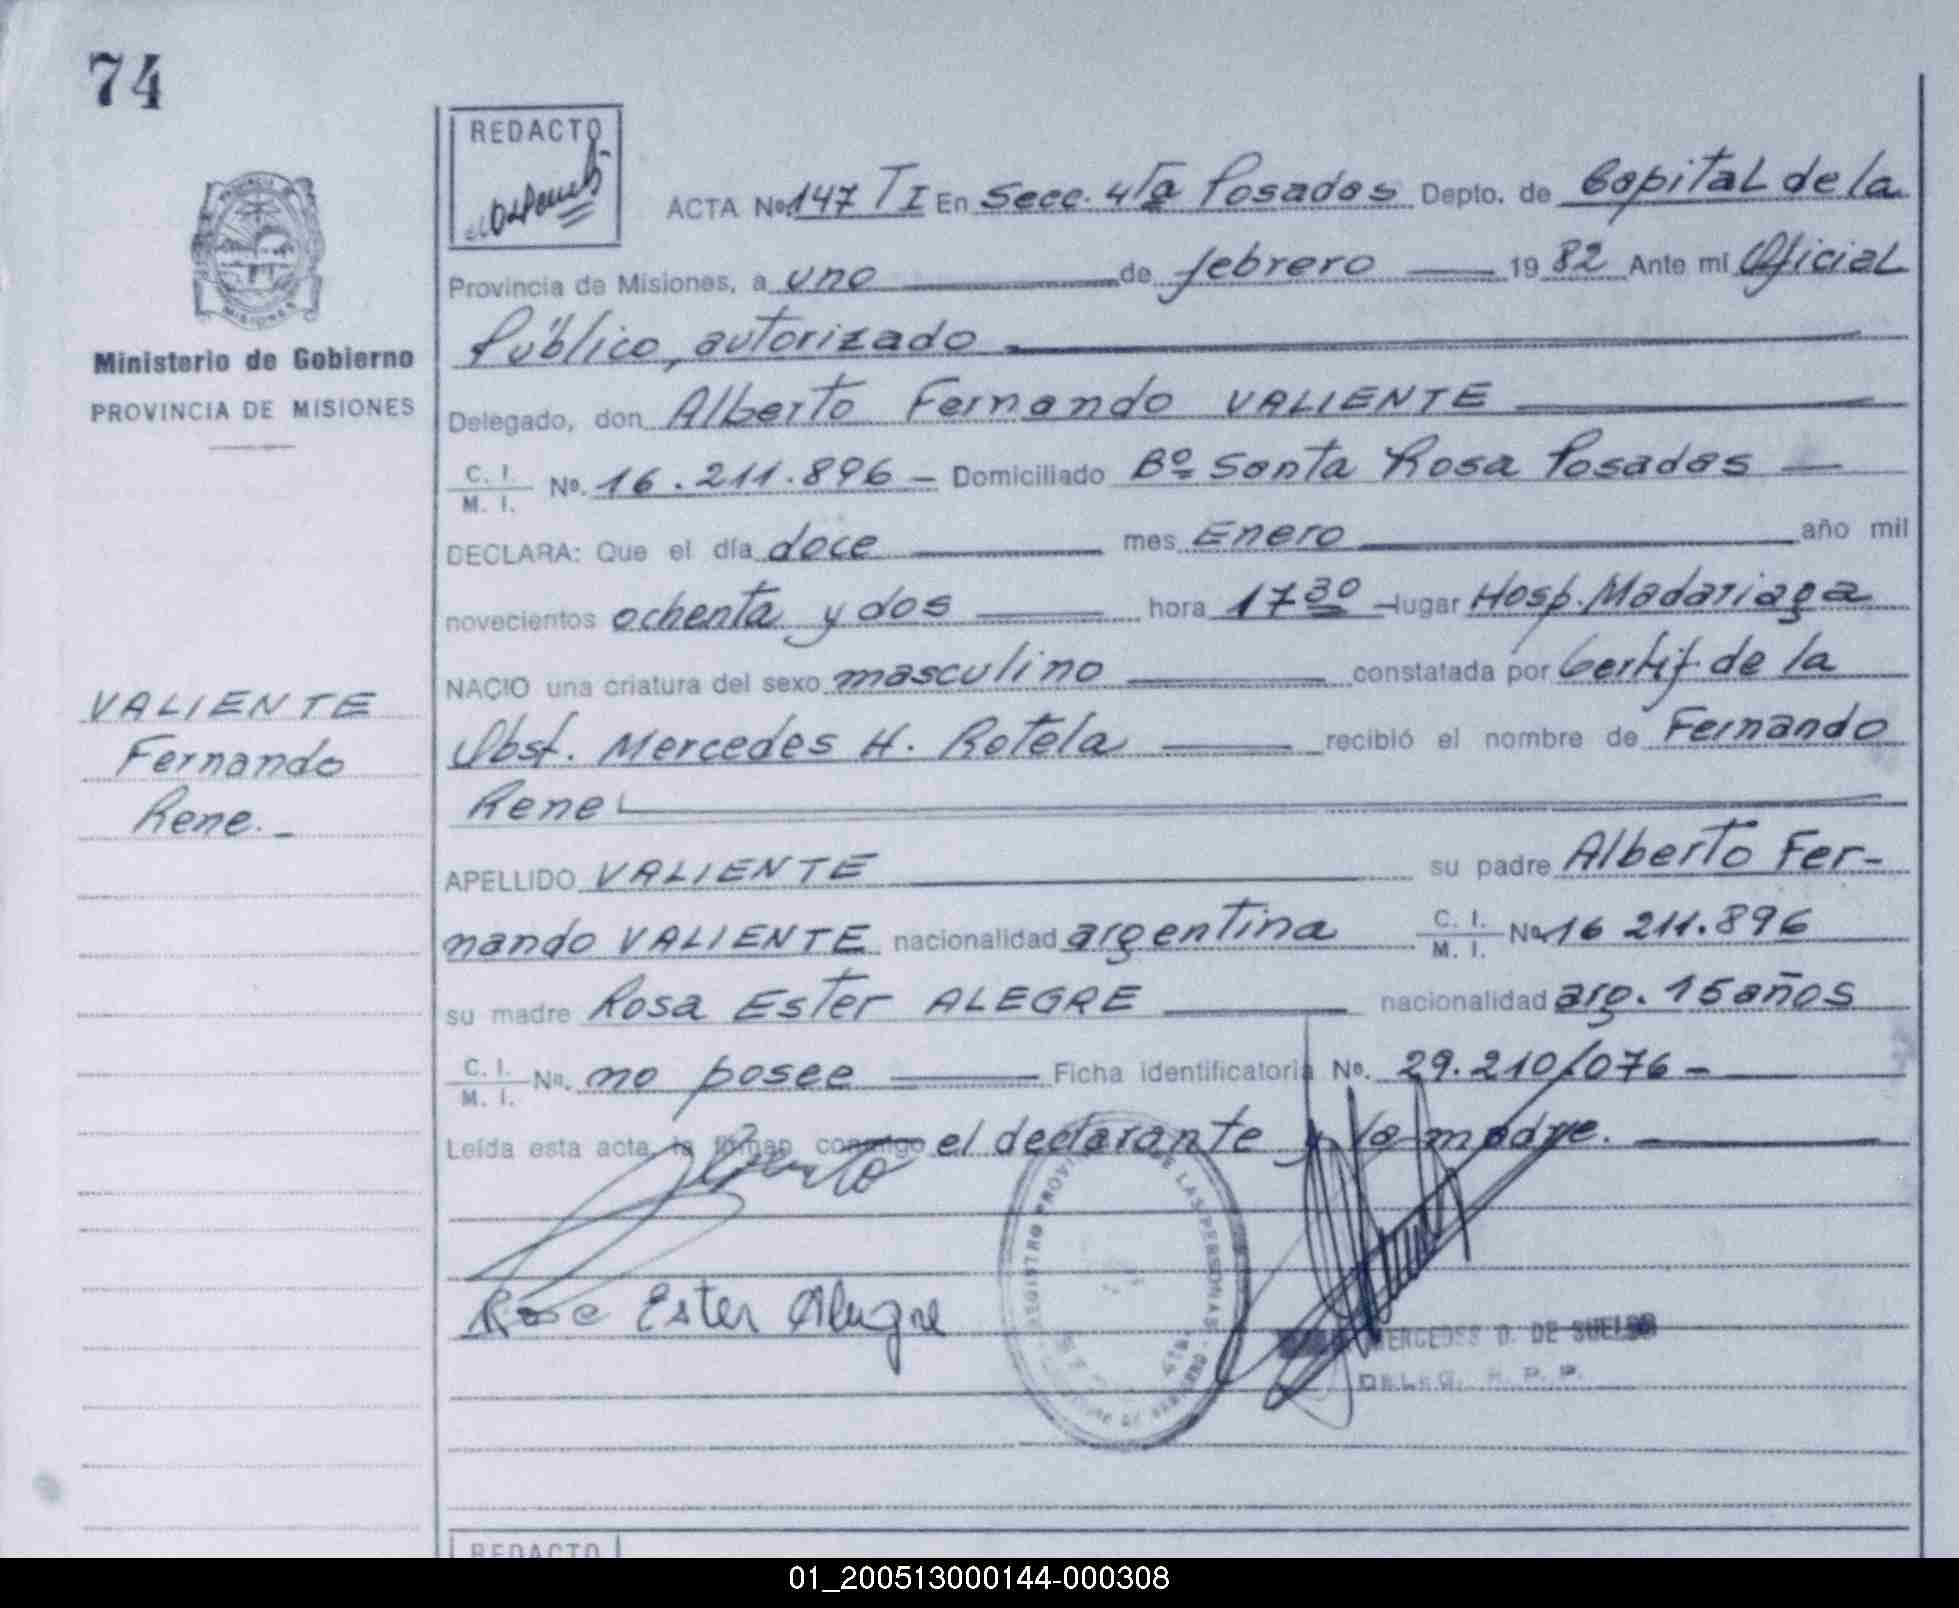 74
REDACTO
ACTA No. 147 TI En Secc. 4ta Posadas Depto. de Capital de la
Provincia de Misiones, a uno de febrero 19 82 Ante mí Oficial
Público, autorizado
Ministerio de Gobierno
PROVINCIA DE MISIONES
Delegado, don Alberto Fernando VALIENTE
C. I. / M. I. No. 16.211.896 - Domiciliado Bº Santa Rosa Posadas
DECLARA: Que el día doce mes Enero año mil
novecientos ochenta y dos hora 17 30 lugar Hosp. Madariaga
NACIO una criatura del sexo masculino constatada por Certif. de la
Obst. Mercedes H. Rotela recibió el nombre de Fernando
Rene
VALIENTE
Fernando
Rene.
APELLIDO VALIENTE su padre Alberto Fer-
nando VALIENTE nacionalidad argentina C. I. / M. I. No. 16 211.896
su madre Rosa Ester ALEGRE nacionalidad arg. 15 años
C. I. / M. I. No. no posee Ficha identificatoria No. 29.210/076 -
Leída esta acta, la firman conmigo el declarante y la madre.
REGISTRO PROVI DE LAS PERSONAS
Rosa Ester Alegre
MERCEDES D. DE SUELDO
DELEG. R. P. P.
REDACTO
01_200513000144-000308